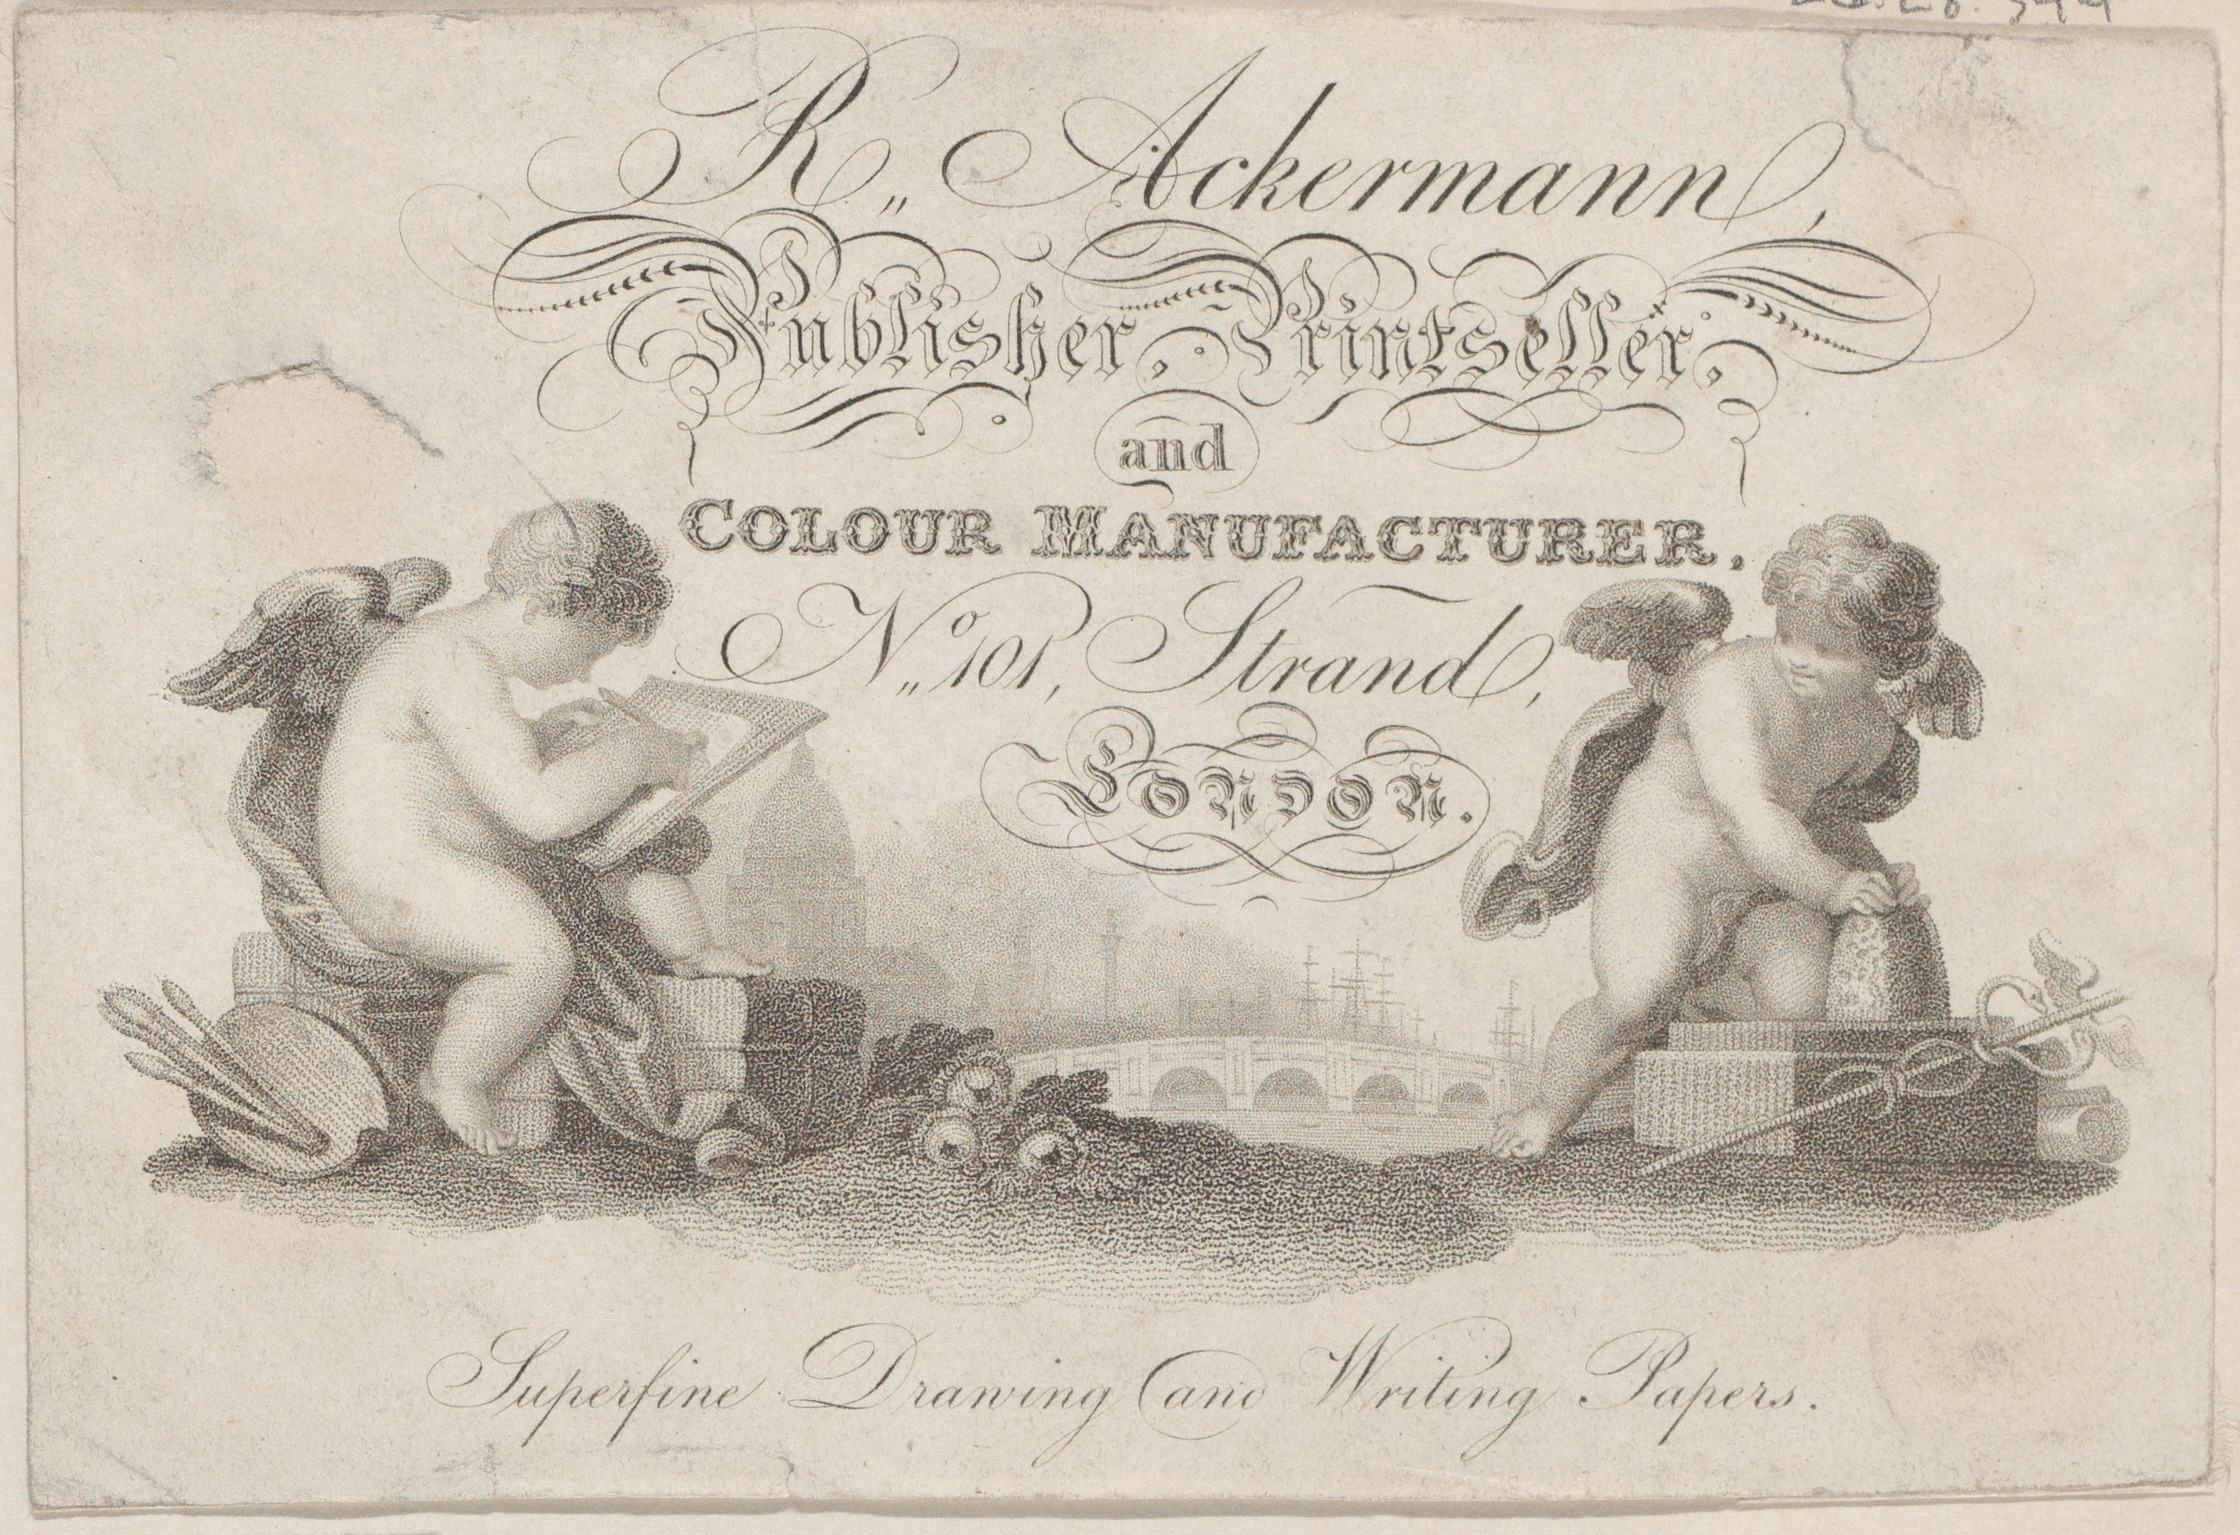 R,, Ackermann,
Publisher, Printseller,
and
COLOUR MANUFACTURER,
No,, 101, Strand,
London.
Superfine Drawing and Writing Papers.